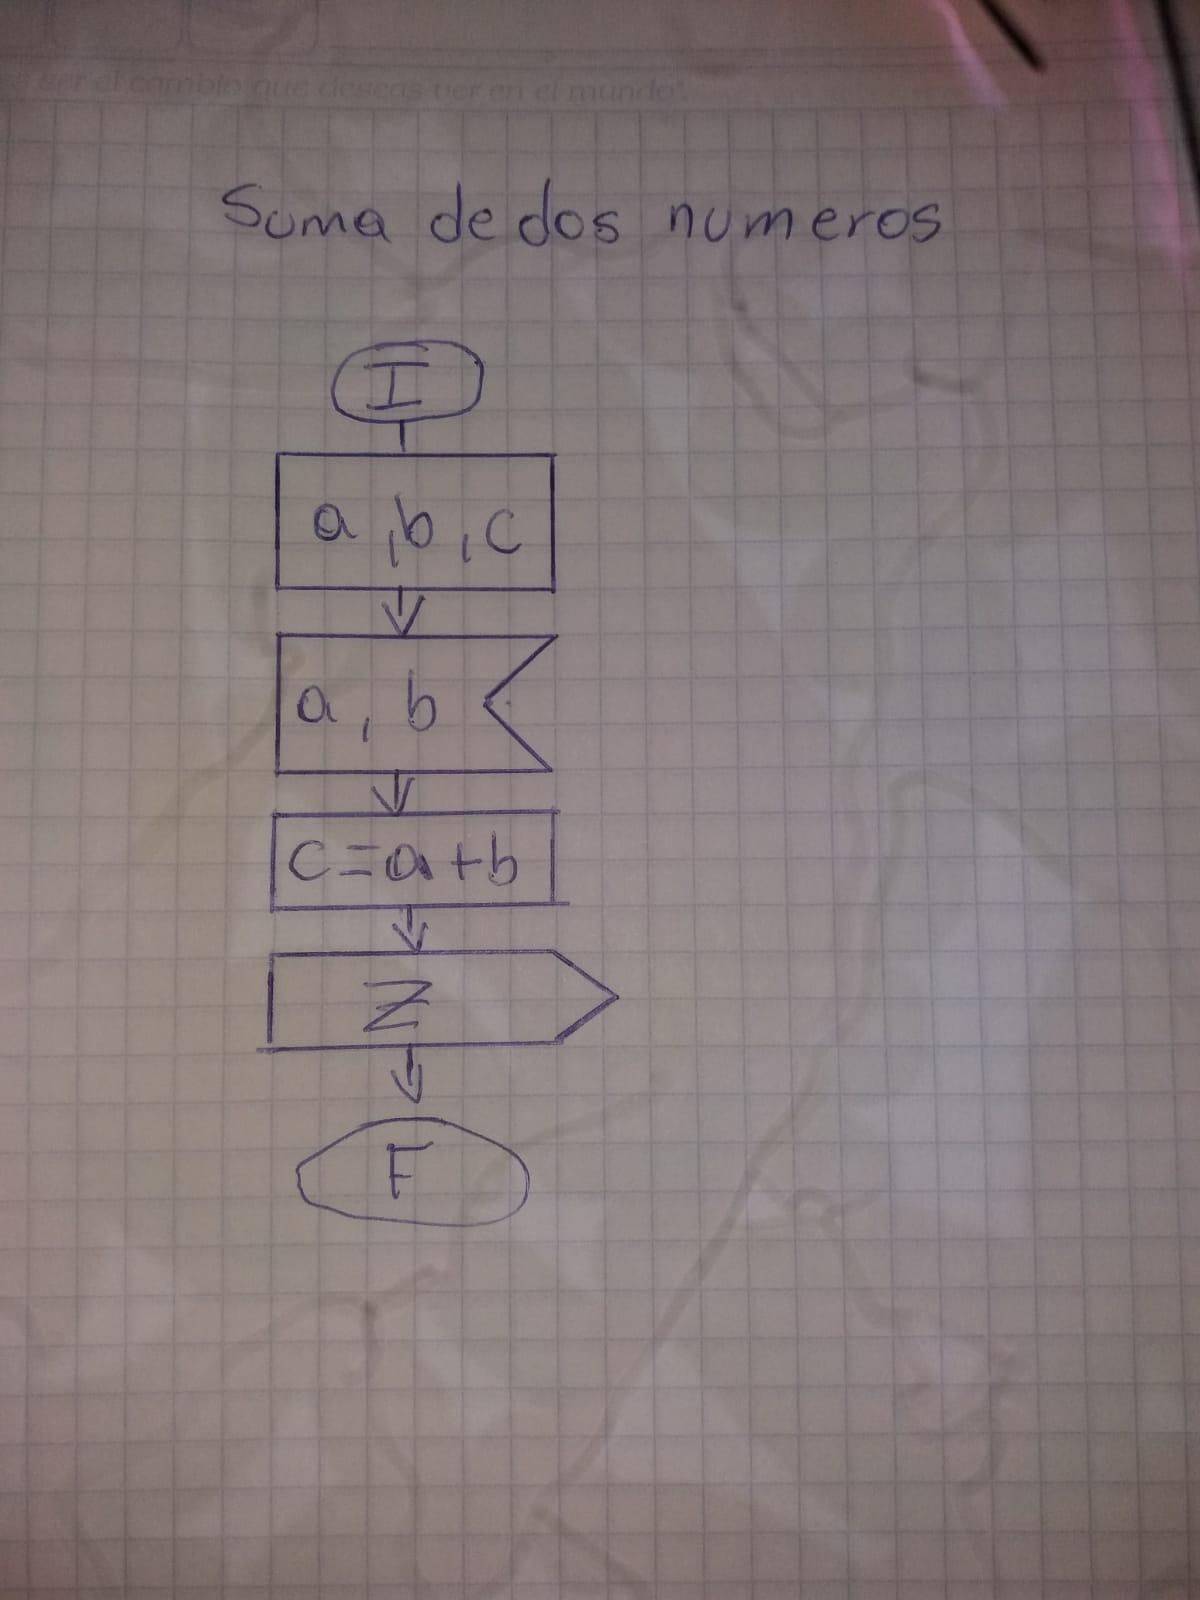 se ser el cambio que deseas ver en el mundo".
Suma de dos numeros
I
a, b, c
a, b
c=a+b
Z
F